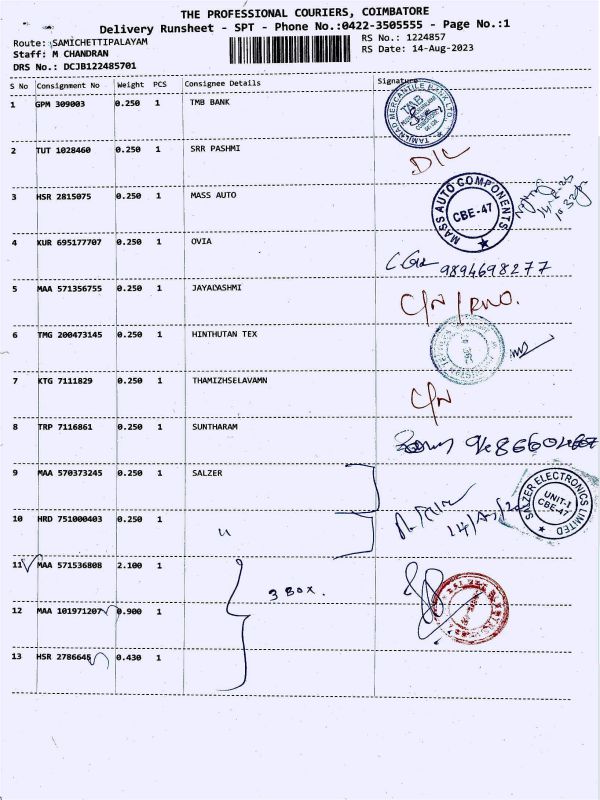 THE PROFESSIONAL COURIERS, COIMBATORE
Delivery Runsheet - SPT - Phone No.:0422-3505555 - Page No.:1
Route: SAMICHETTIPALAYAM
RS No.: 1224857
Staff: M CHANDRAN
RS Date: 14-Aug-2023
DRS No.: DCJB122485701
S No Consignment No Weight PCS Consignee Details Signature
1 GPM 309003 0.250 1 TMB BANK
TAMILNAD MERCANTILE BANK LTD.
TMB
2 TUT 1028460 0.250 1 SRR PASHMI
D/L
3 HSR 2815075 0.250 1 MASS AUTO
MASS AUTO COMPONENTS
CBE-47
4 KUR 695177707 0.250 1 OVIA
9894698277
5 MAA 571356755 0.250 1 JAYALAKSHMI
C/N / RNO.
6 TMG 200473145 0.250 1 HINTHUTAN TEX
7 KTG 7111829 0.250 1 THAMIZHSELAVAMN
C/N
8 TRP 7116861 0.250 1 SUNTHARAM
9 MAA 570373245 0.250 1 SALZER
SALZER ELECTRONICS LIMITED
UNIT-1
CBE-47
10 HRD 751000403 0.250 1 "
11 MAA 571536808 2.100 1
3 BOX.
12 MAA 101971207 0.900 1
13 HSR 2786645 0.430 1